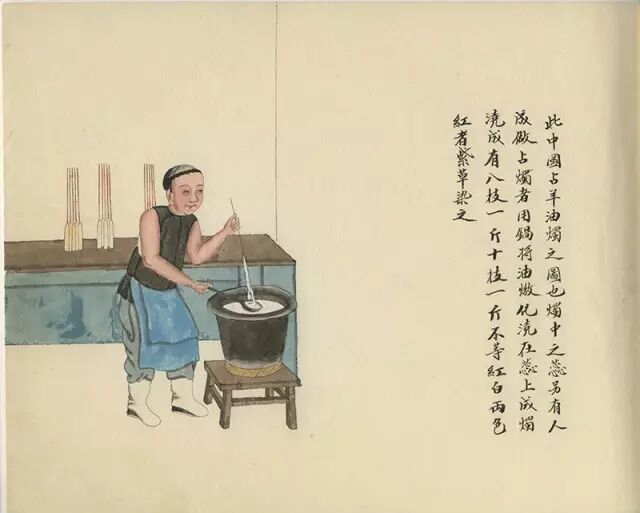 此中國占羊油燭之圖也燭中之蕊另有人
潑做占燭者用鍋將油燉化澆在蕊上成燭
澆成有八枝一斤十枝一斤不等紅白兩色
紅者紫草染之